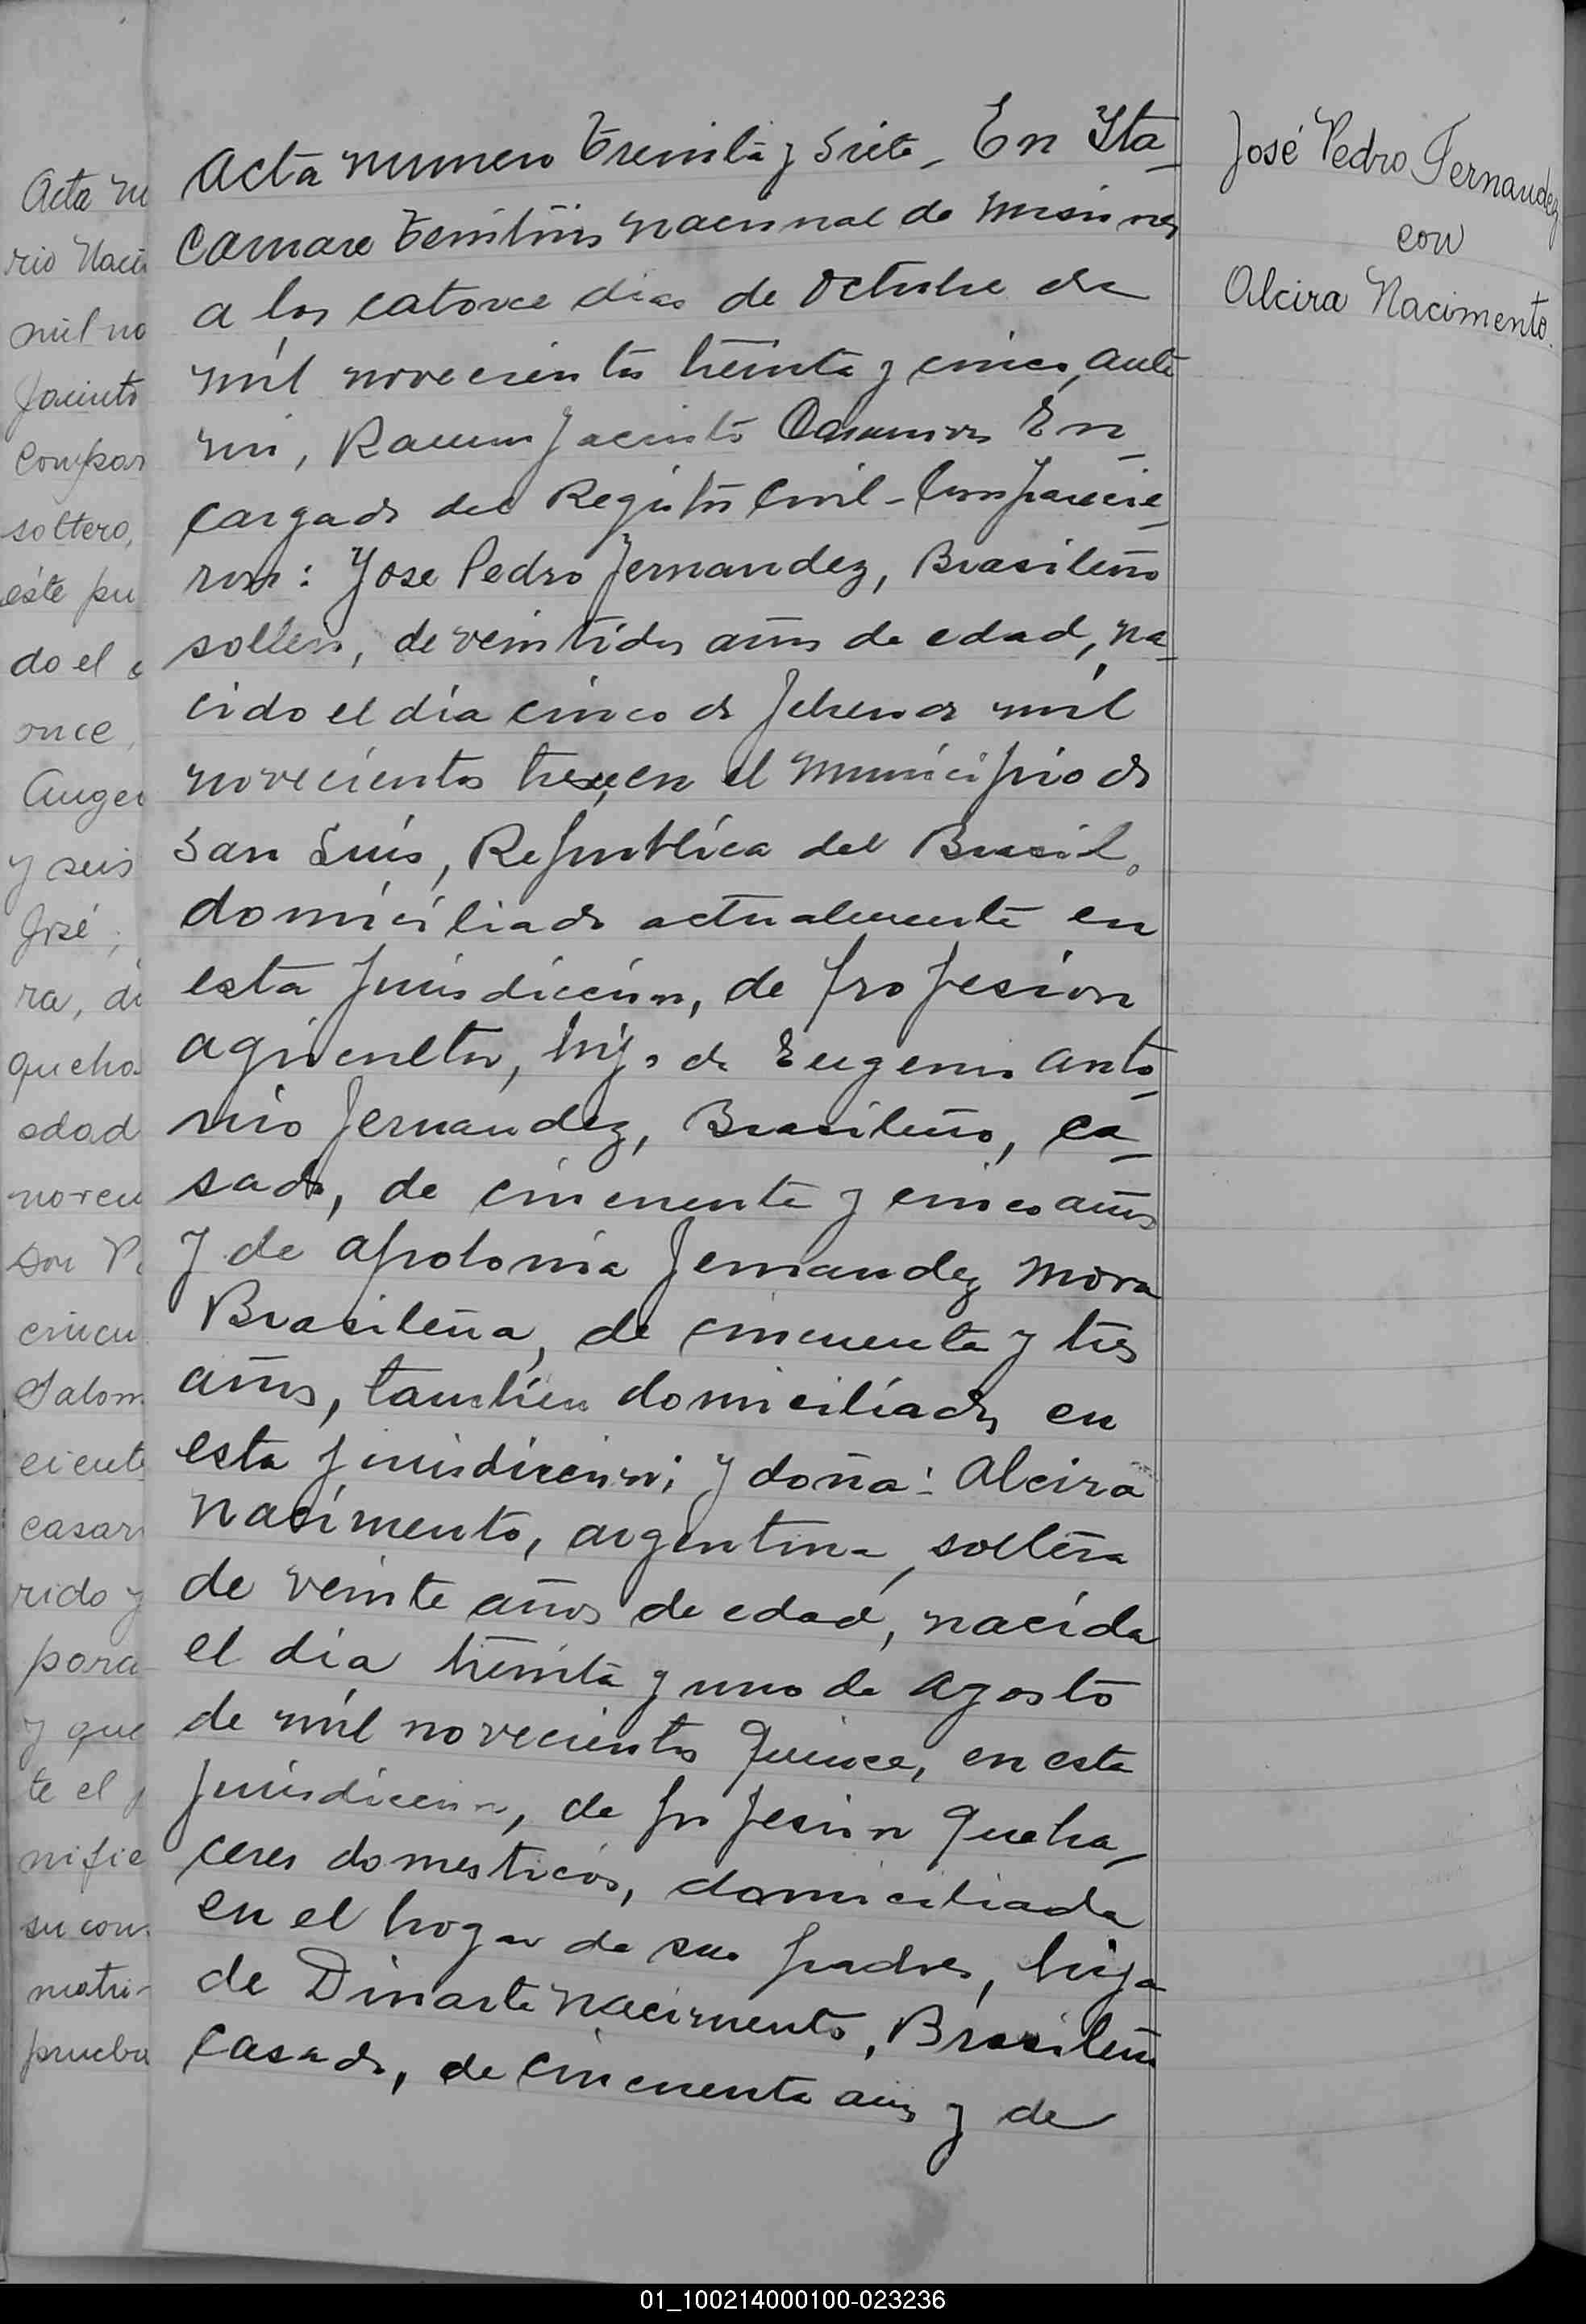 Acta numero Treinta y Siete_ En Ita_
Camare Territorio nacional de Misiones
a los catorce dias de Octubre de
mil novecientos treinta y cinco, ante
mi, Ramon Jacinto En_
cargado del Registro Civil_Comparecie_
ron: Jose Pedro Fernandez, Brasileño
soltero, de veintidos años de edad, na_
cido el día cinco de febrero de mil
novecientos trece, en el municipio de
San Luis, Republica del Brasil,
domiciliado actualmente en
esta jurisdiccion, de profesion
agricultor, hijo de Eugenio Anto_
nio Fernandez, Brasileño, ca_
sado, de cincuenta y cinco años
y de Apolonia Fernandez Mora
Brasileña, de cincuenta y tres
años, tambien domiciliados en
esta jurisdiccion; y doña: Alcira
Nacimento, argentina, soltera
de veinte años de edad, nacida
el dia treinta y uno de Agosto
de mil novecientos quince, en esta
jurisdiccion, de profesion queha_
ceres domesticos, domiciliada
en el hogar de sus padres, hija
de Dinarte Nacimento, Brasileño
casado, de cincuenta años y de
José Pedro Fernandez
con
Alcira Nacimento.
Acta nu
rio Naci
mil no
Jacinto
Compar
soltero,
éste pu
do el
once,
Auge
y seis
José,
ra, di
queha
edad
noveu
Don P
cincu
Salom
ciento
casar
rido y
para
y que
te el
nifie
su con
matri-
prueba
01_100214000100-023236